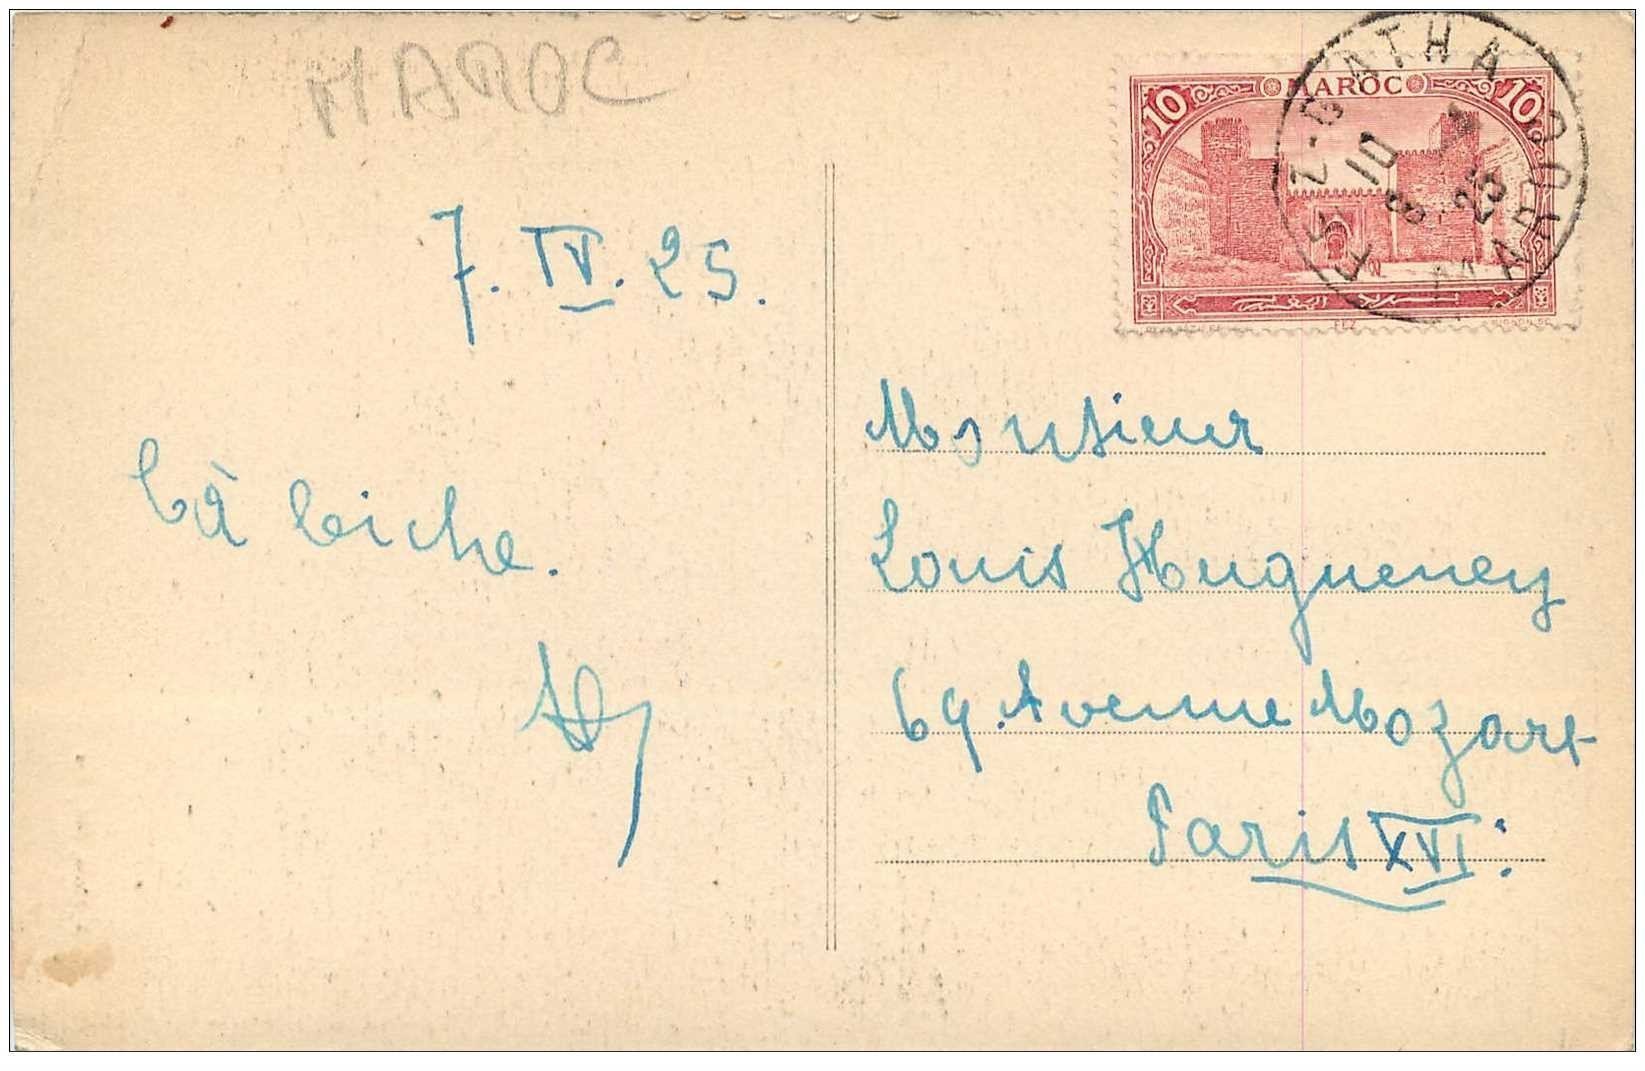 MAROC
7. IV. 25.
MAROC
10 10
FEZ
FEZ-BATHA
10
8 25
MAROC
Monsieur
Louis Hugueney
69. Avenue Mozart
Paris XVI: